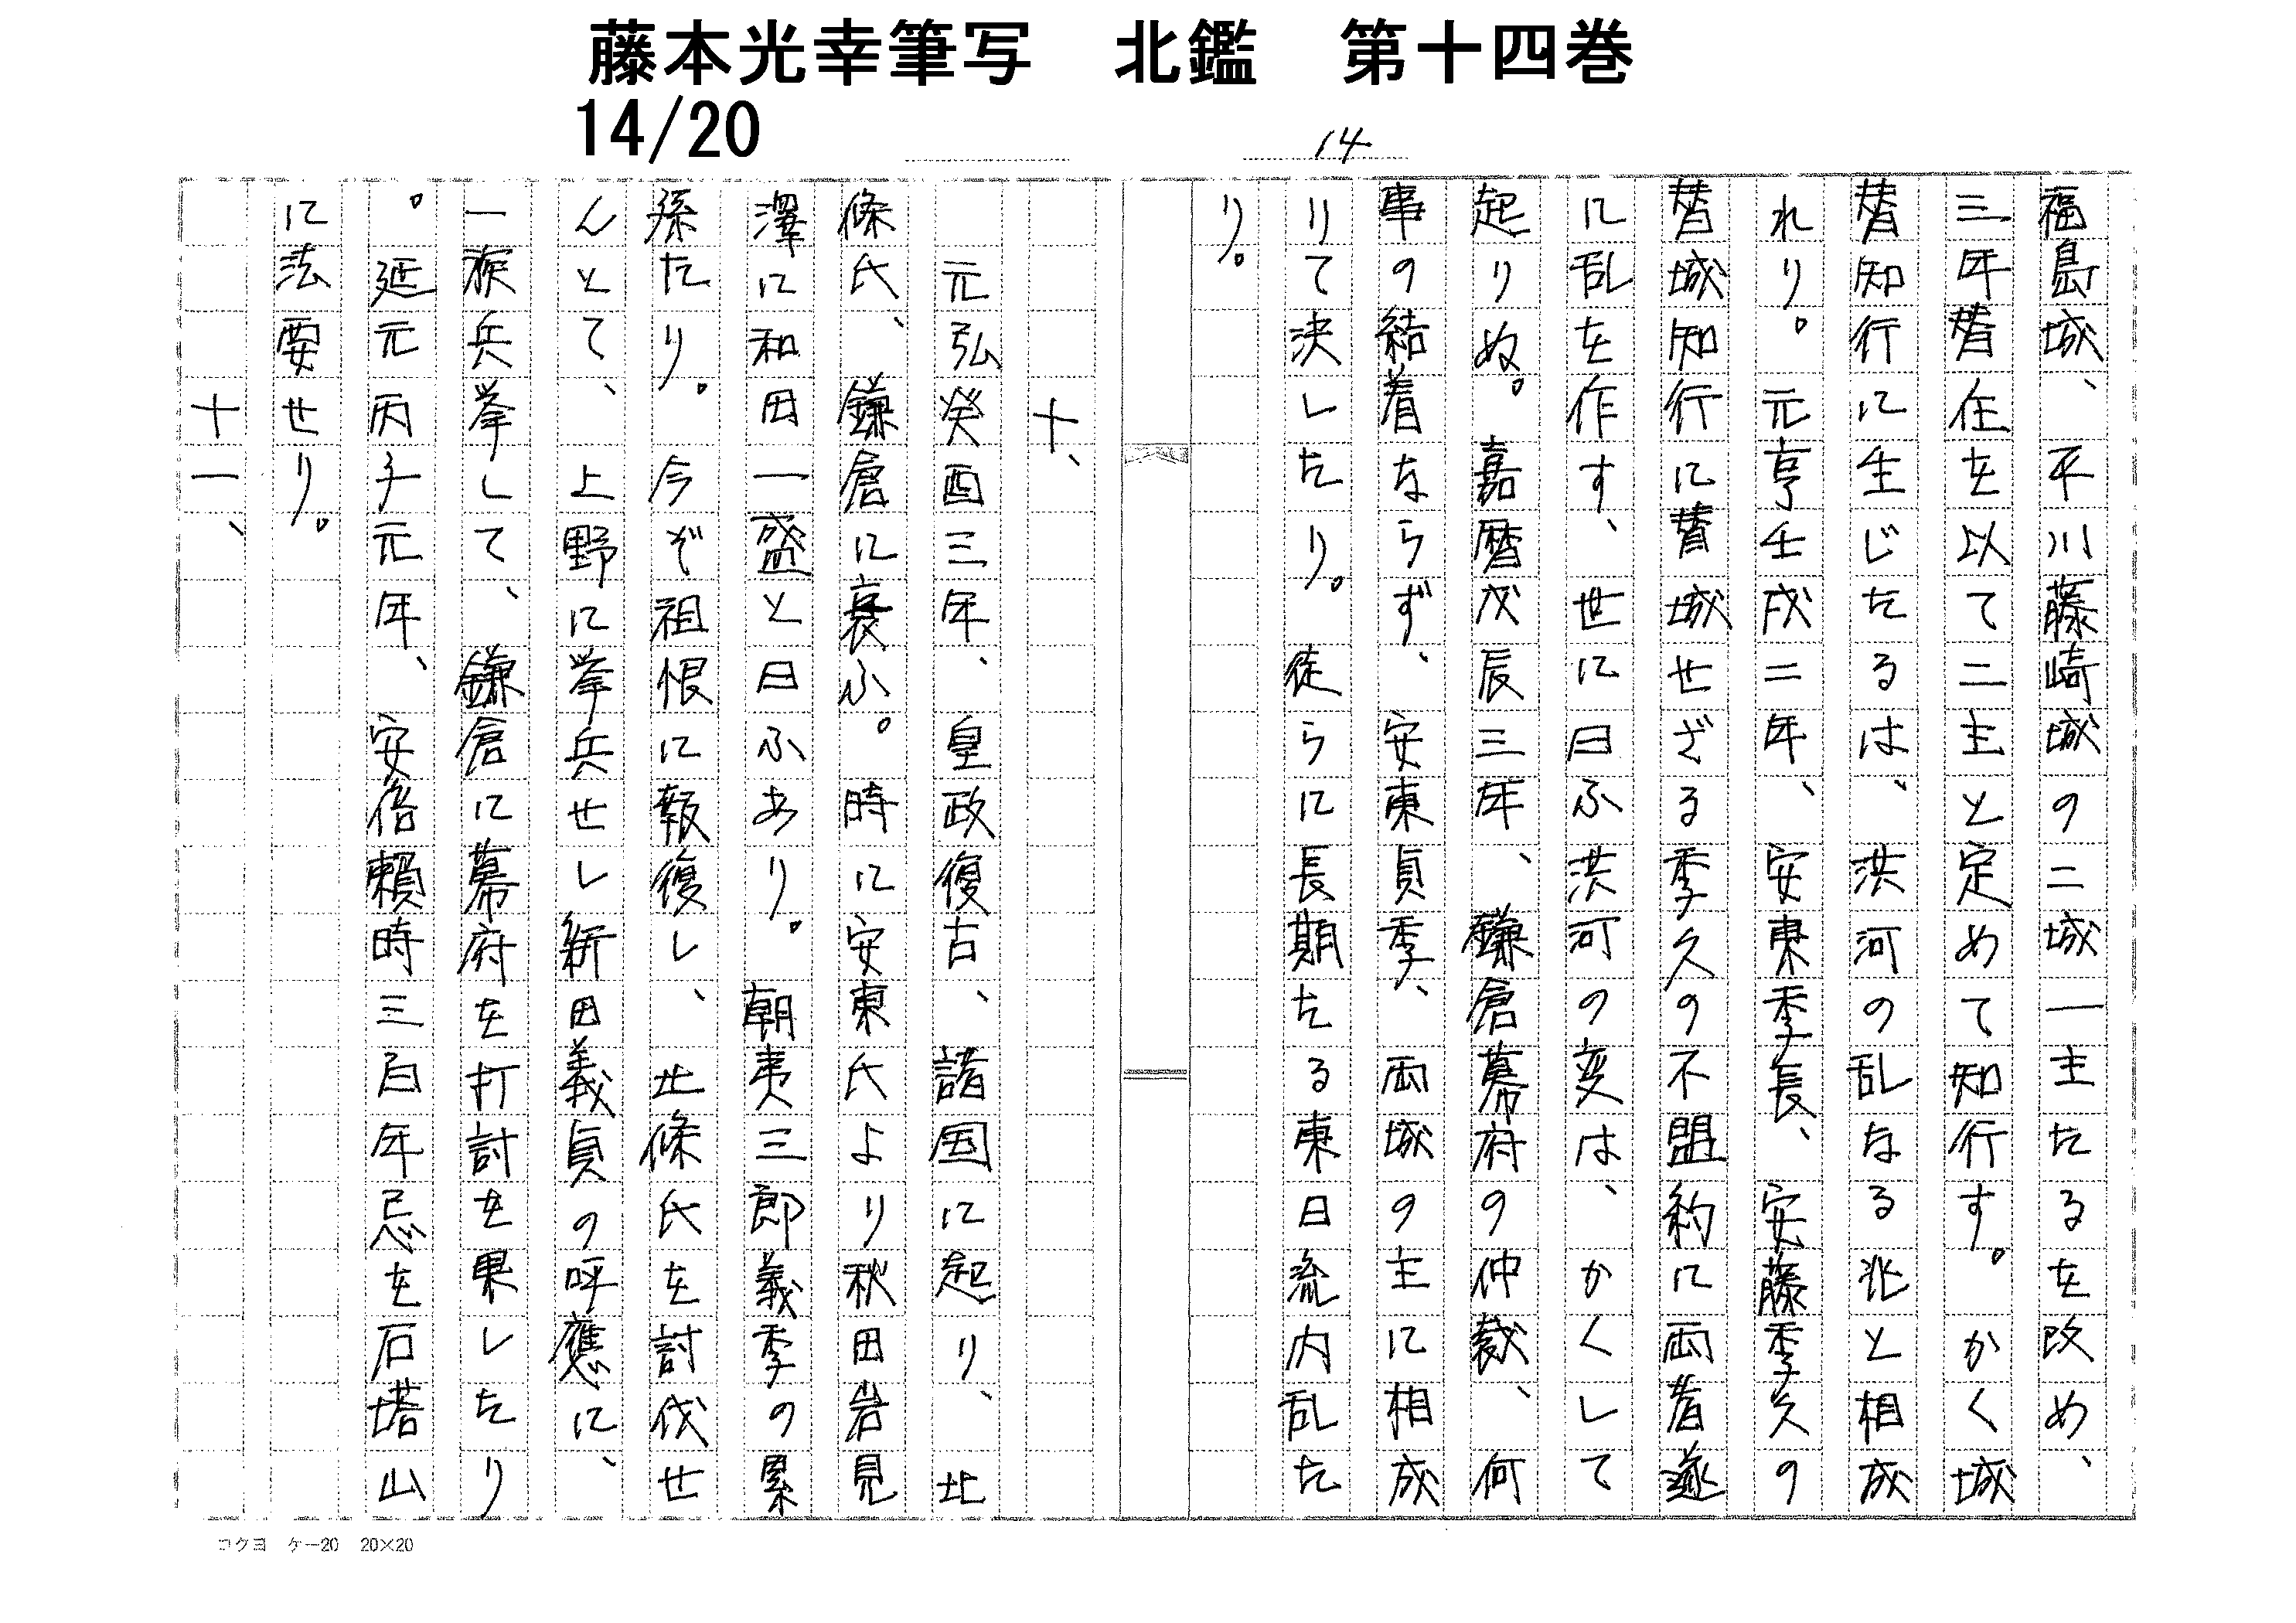 藤本光幸筆写　北鑑　第十四巻
14/20
14
福島城、平川藤崎城の二城一主たるを改め、
三年替在を以て二主と定めて知行す。かく城
替知行に生じたるは、洪河の乱なる兆と相成
れり。元亨壬戌二年、安東季長、安藤季久の
替城知行に替城せざる季久の不盟約に両者遂
に乱を作す、世に曰ふ洪河の変は、かくして
起りぬ。嘉暦戊辰三年、鎌倉幕府の仲裁、何
事の結着ならず、安東貞季、両城の主に相成
りて決したり。徒らに長期たる東日流内乱た
り。
十、
元弘癸酉三年、皇政復古、諸国に起り、北
條氏、鎌倉に衰ふ。時に安東氏より秋田岩見
澤に和田一盛と曰ふあり。朝夷三郎義季の累
孫たり。今ぞ祖恨に報復し、北條氏を討伐せ
んとて、上野に挙兵せし新田義貞の呼應に、
一族兵挙して、鎌倉に幕府を打討を果したり
。延元丙子元年、安倍頼時三百年忌を石塔山
に法要せり。
十一、
コクヨ　ケー20　20×20